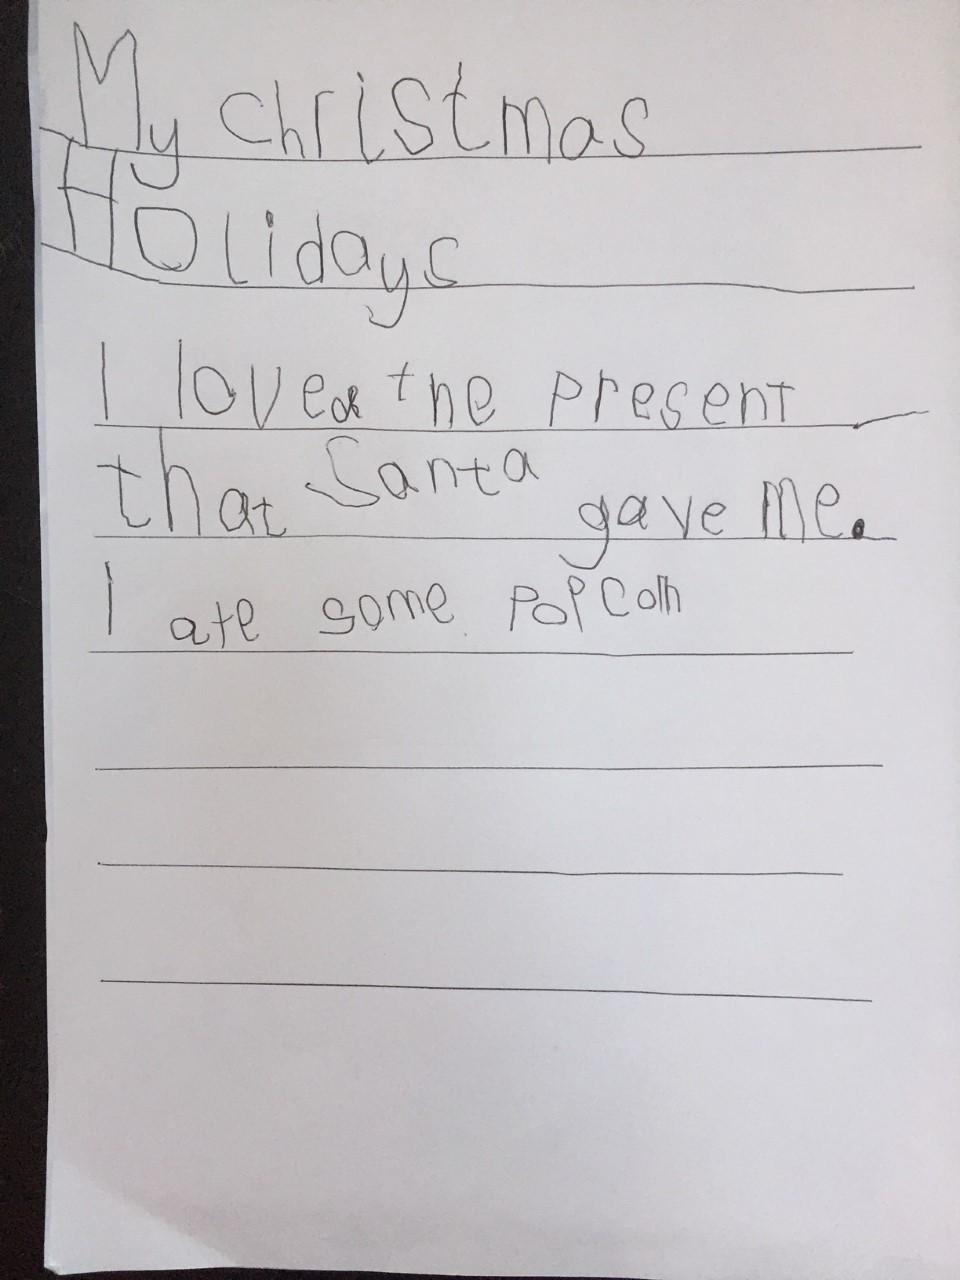 My christmas
Holidays
I loved the present
that Santa gave me.
I ate some PoPcorn